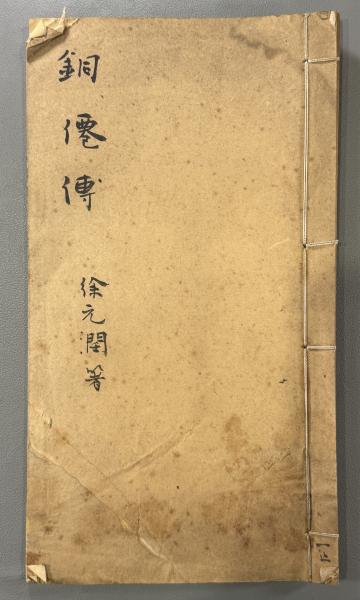 銅僊傳
徐元潤著